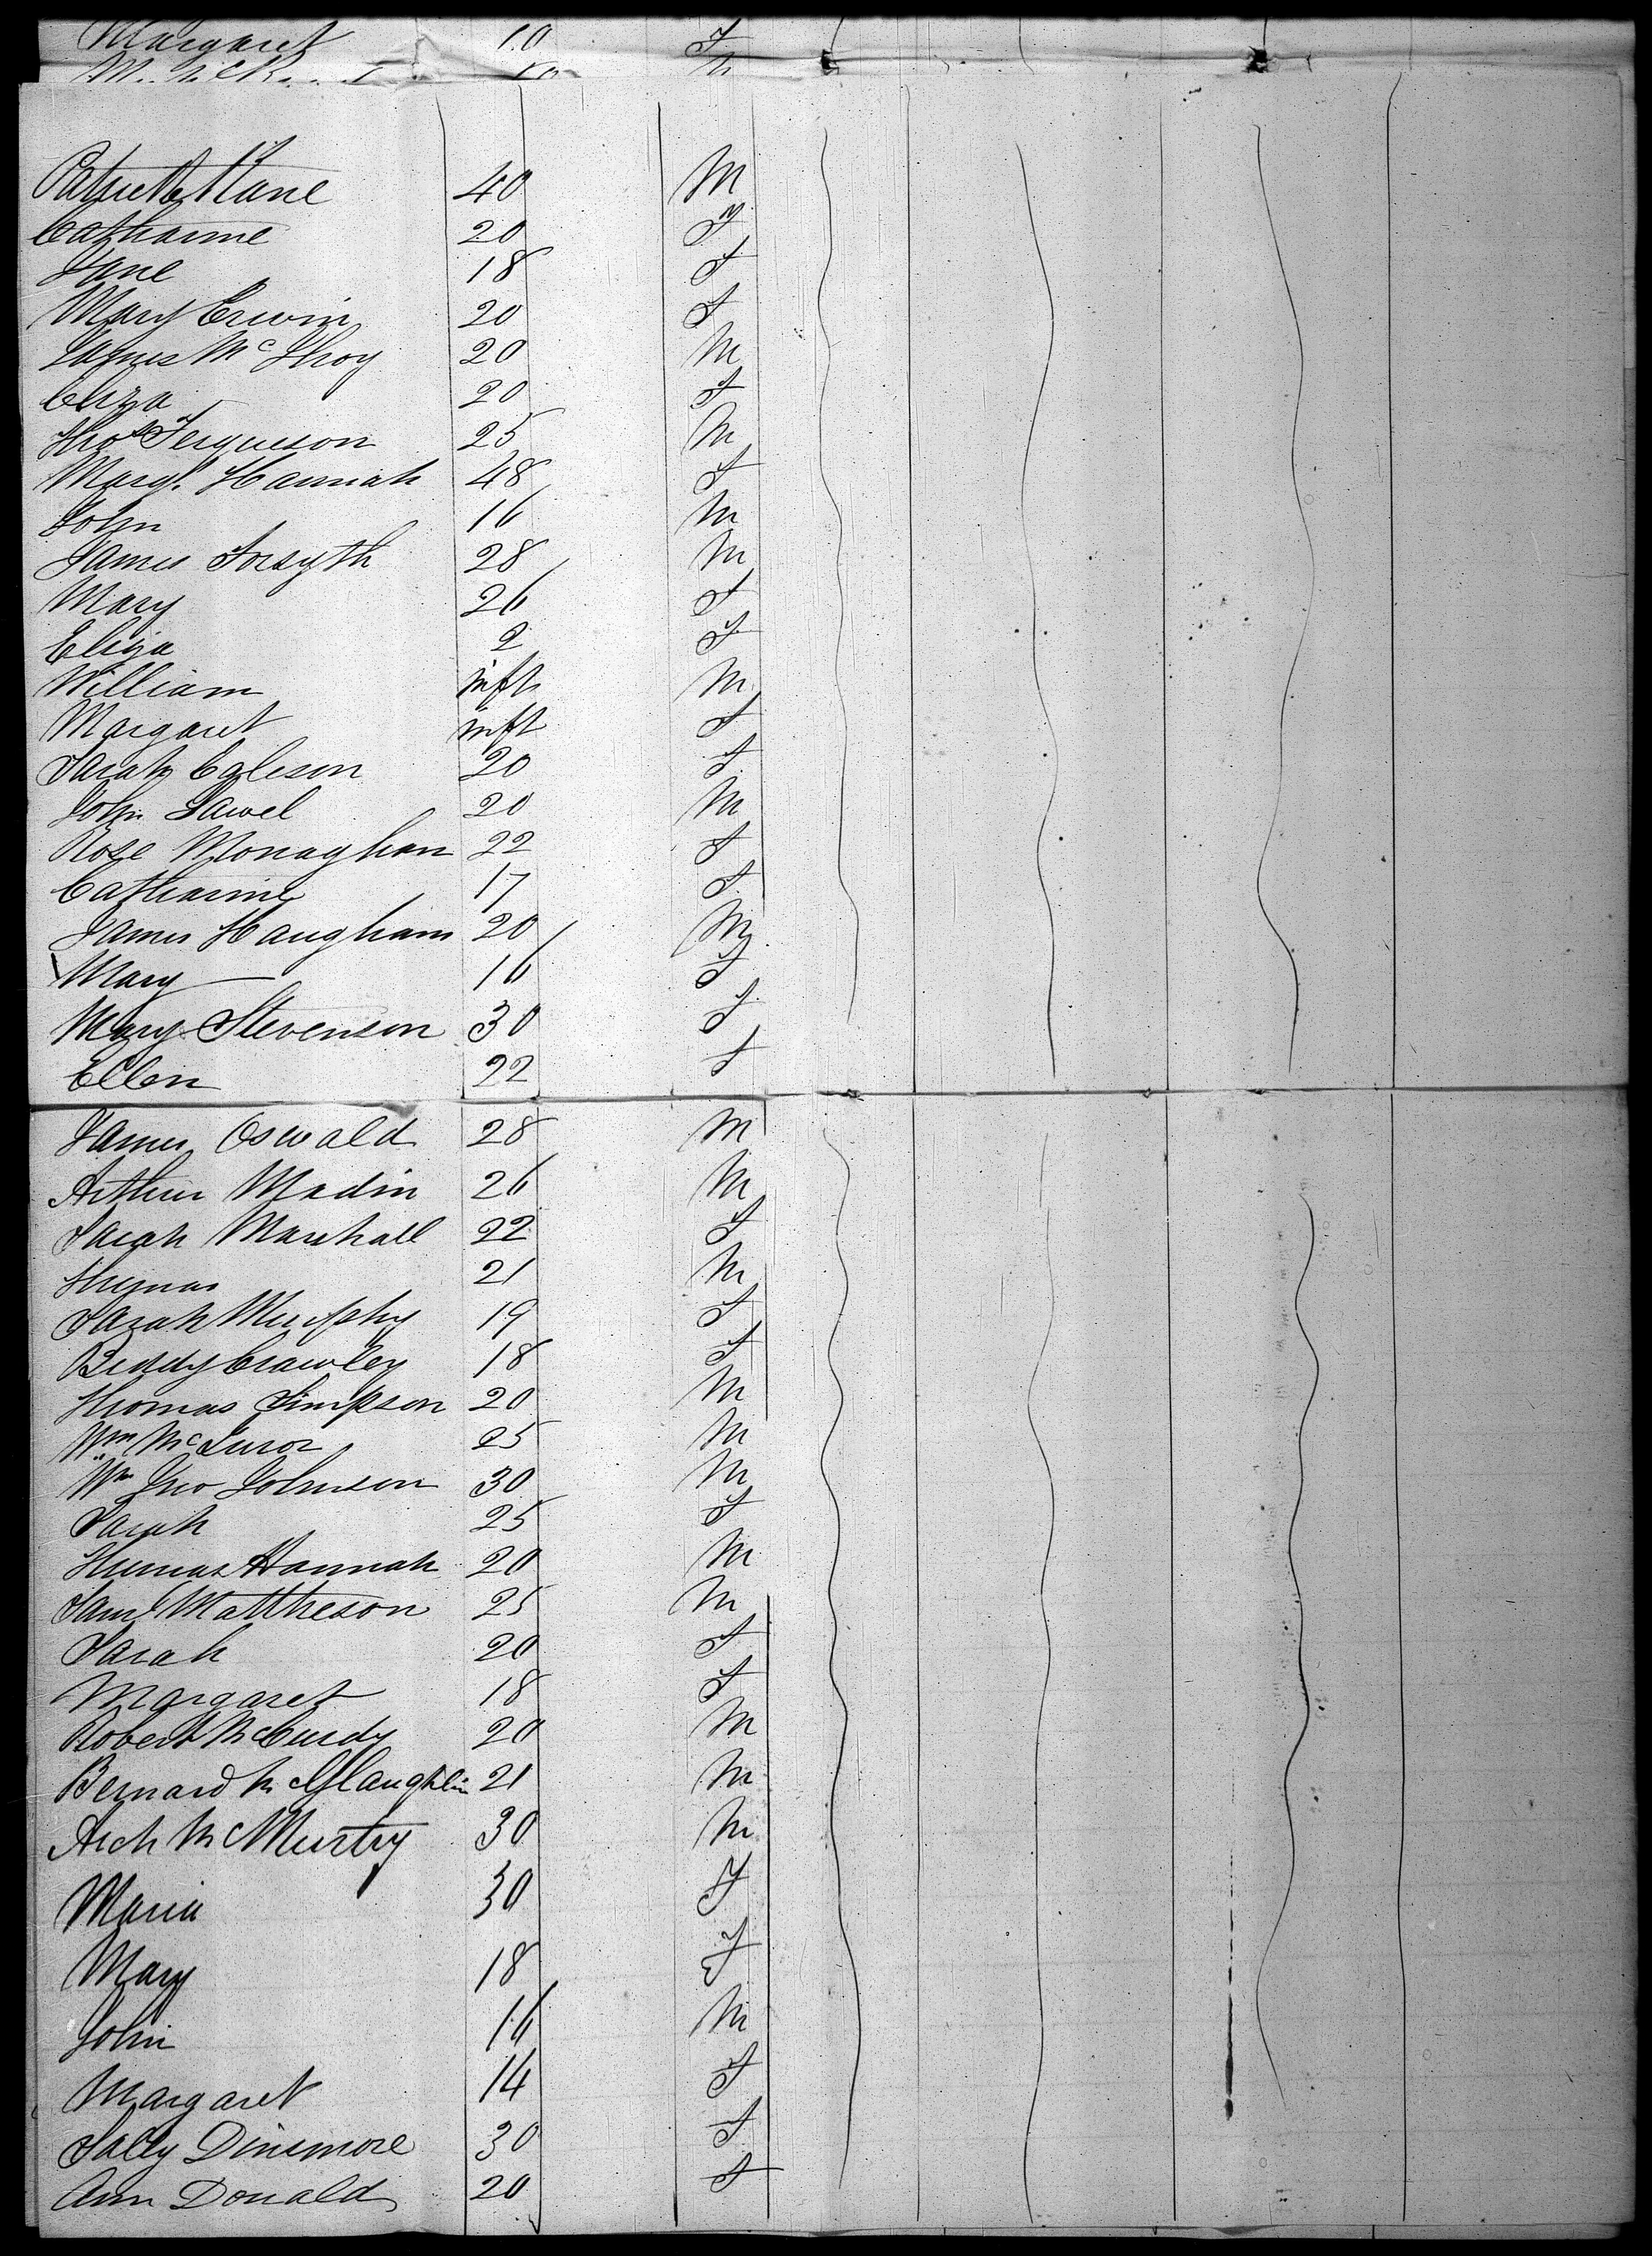 Margaret 10 F
Patrick Kane 40 M
Catharine 20 F
Jane 18 F
Mary Erwin 20 F
James McIlroy 20 M
Eliza 20 F
Thos Ferguson 25 M
Margt. Hannah 48 F
John 16 M
James Forsyth 28 M
Mary 26 F
Eliza 2 F
William inft M
Margaret inft F
Sarah Egleson 20 F
John Sawel 20 M
Rose Monaghan 22 F
Catharine 17 F
James Haugham 20 M
Mary 16 F
Mary Stevenson 30 F
Ellen 22 F
James Oswald 28 M
Arthur Madin 26 M
Sarah Marshall 22 F
Thomas 21 M
Sarah Murphy 19 F
Biddy Crawley 18 F
Thomas Simpson 20 M
Wm 25 M
Wm Jno Johnson 30 M
Sarah 25 F
Thomas Hannah 20 M
Saml Mattheson 25 M
Sarah 20 F
Margaret 18 F
Robert McCurdy 20 M
Bernard McGlaughlin 21 M
Arch McMurtry 30 M
Maria 30 F
Mary 18 F
John 16 M
Margaret 14 F
Sally Dinsmore 30 F
Ann Donald 20 F